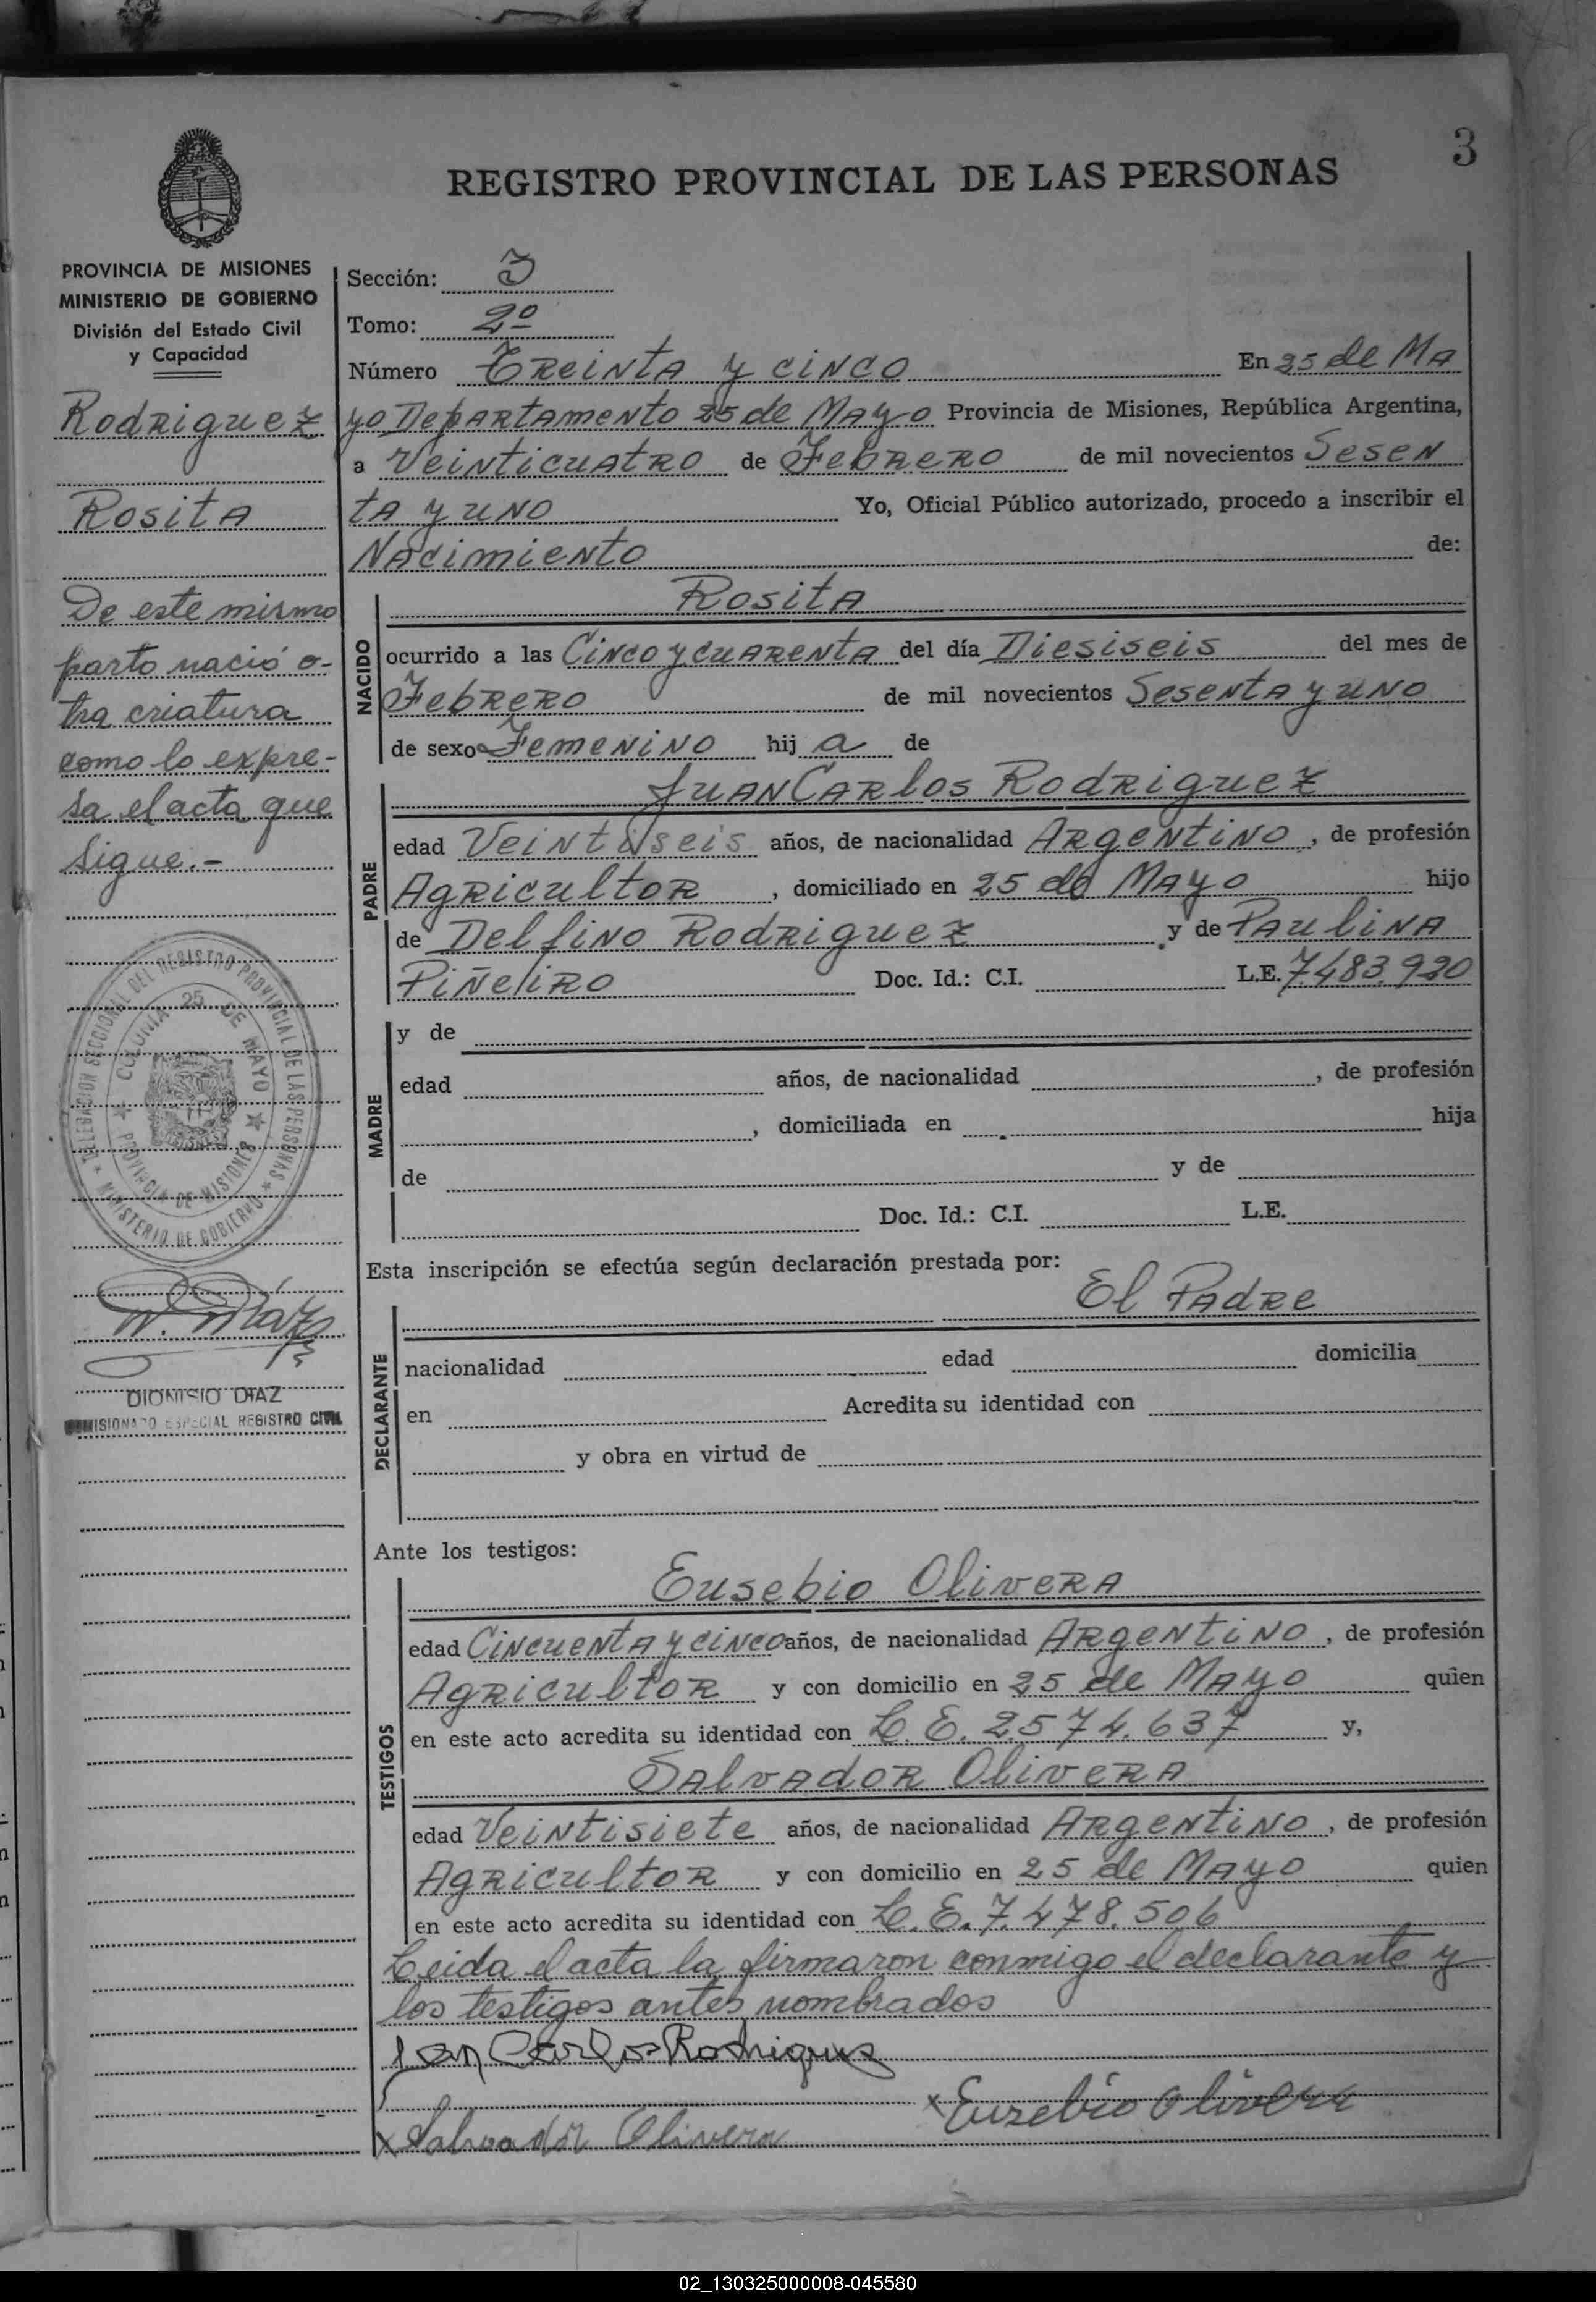 3
REGISTRO PROVINCIAL DE LAS PERSONAS
PROVINCIA DE MISIONES
MINISTERIO DE GOBIERNO
División del Estado Civil
y Capacidad
Rodriguez
Rosita
De este mismo
parto nació o-
tra criatura
como lo expre-
sa el acta que
sigue.-
DELEGACION SECCIONAL DEL REGISTRO PROVINCIAL DE LAS PERSONAS
★ MINISTERIO DE GOBIERNO ★
★ COLONIA 25 DE MAYO ★
PROVINCIA DE MISIONES
DIONISIO DIAZ
COMISIONADO ESPECIAL REGISTRO CIVIL
Sección: J
Tomo: 2º
Número Treinta y cinco En 25 de Ma
yo Departamento 25 de Mayo Provincia de Misiones, República Argentina,
a Veinticuatro de Febrero de mil novecientos Sesen
ta y uno Yo, Oficial Público autorizado, procedo a inscribir el
Nacimiento de:
NACIDO
Rosita
ocurrido a las Cinco y cuarenta del día Diesiseis del mes de
Febrero de mil novecientos Sesenta y uno
de sexo Femenino hij a de
PADRE
Juan Carlos Rodriguez
edad Veintiseis años, de nacionalidad Argentino, de profesión
Agricultor, domiciliado en 25 de Mayo hijo
de Delfino Rodriguez y de Paulina
Piñeiro Doc. Id.: C.I. L.E. 7.483.920
MADRE
y de
edad años, de nacionalidad , de profesión
, domiciliada en hija
de y de
Doc. Id.: C.I. L.E.
Esta inscripción se efectúa según declaración prestada por:
DECLARANTE
El Padre
nacionalidad edad domicilia
en Acredita su identidad con
y obra en virtud de
Ante los testigos:
TESTIGOS
Eusebio Olivera
edad Cincuenta y cinco años, de nacionalidad Argentino, de profesión
Agricultor y con domicilio en 25 de Mayo quien
en este acto acredita su identidad con L. E. 2.574.637 y,
Salvador Olivera
edad Veintisiete años, de nacionalidad Argentino, de profesión
Agricultor y con domicilio en 25 de Mayo quien
en este acto acredita su identidad con L. E. 7.478.506
Leida el acta la firmaron conmigo el declarante y
los testigos antes nombrados
Juan Carlos Rodriguez
x Eusebio Olivera
x Salvador Olivera
02_130325000008-045580